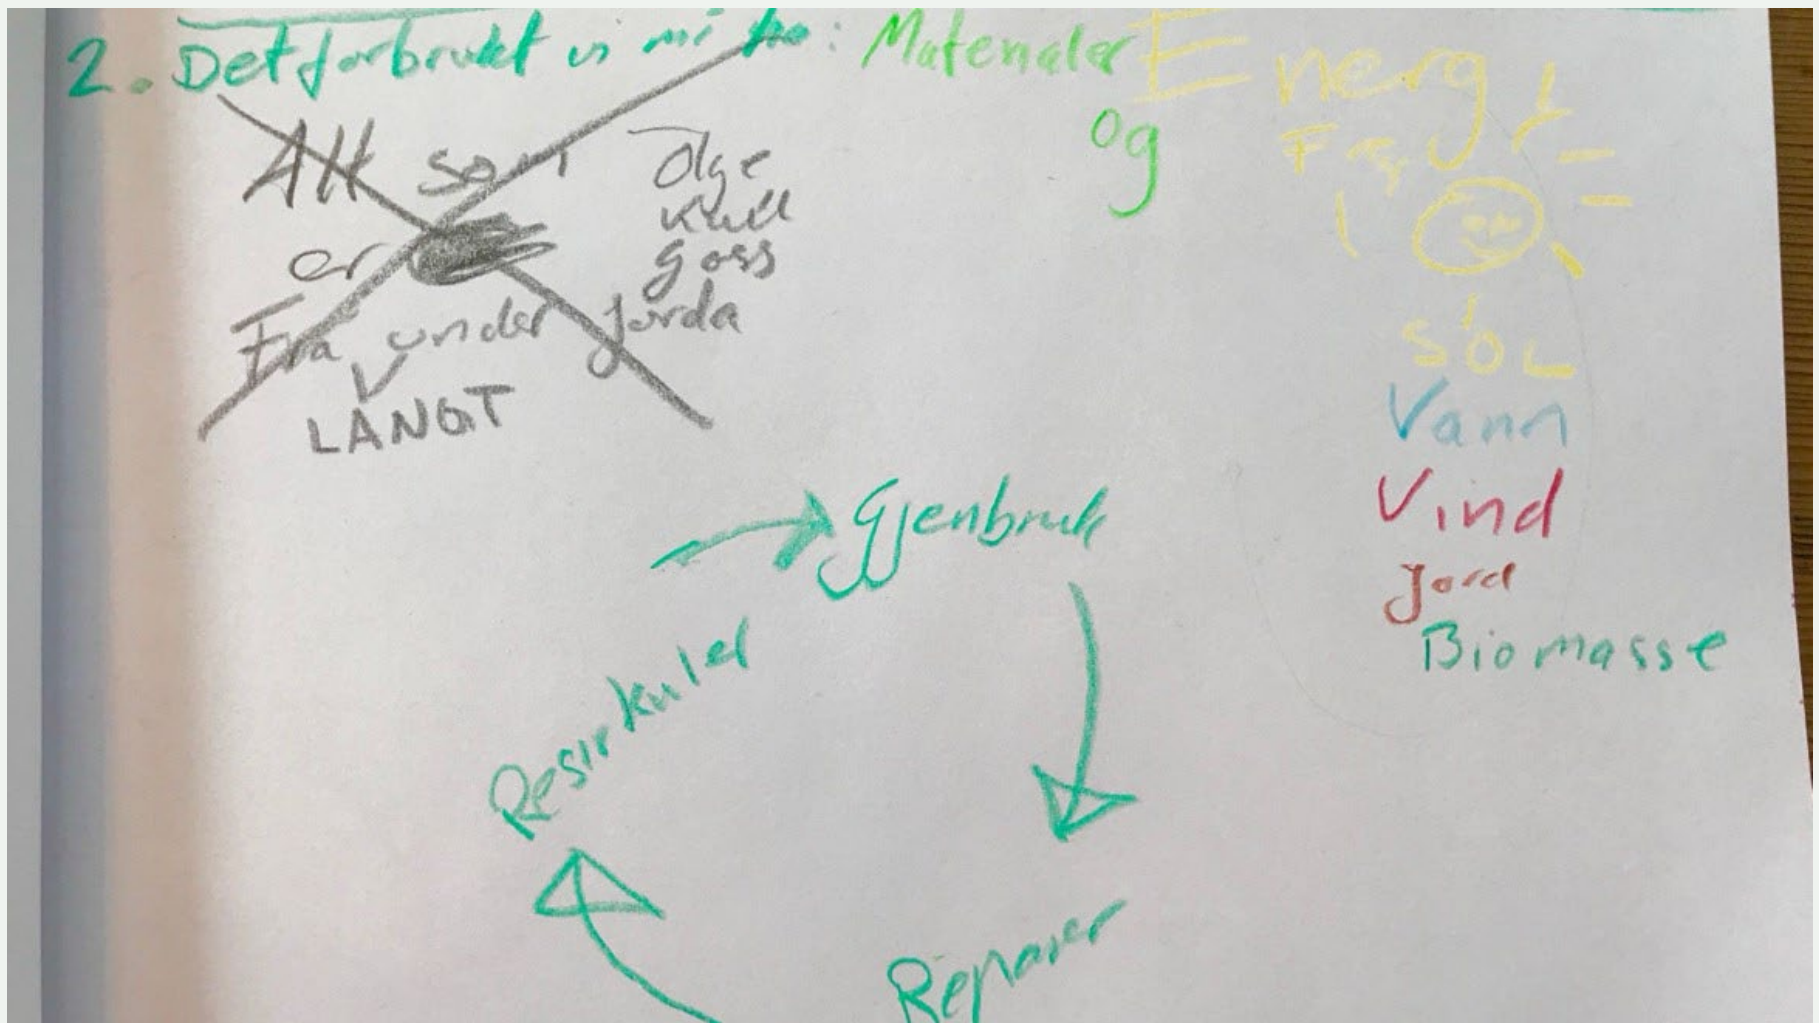 2. Det forbruket vi må ha: Materialer
og
Energi
Alt som
er
Fra under jorda
V
LANGT
Olge
Kull
Gass
Fra
SOL
Vann
Vind
Jord
Biomasse
Gjenbruk
Reparer
Resirkuler